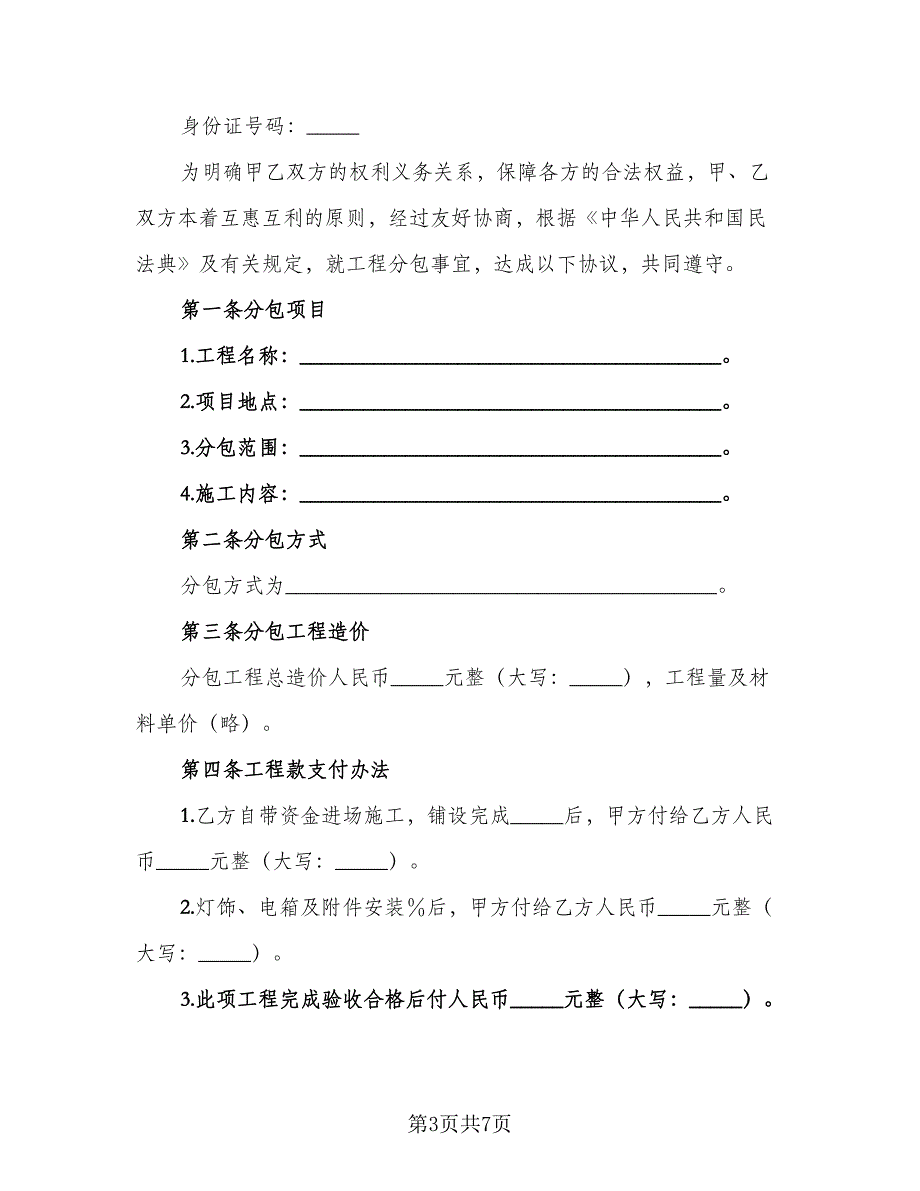 身份证号码：_____
为明确甲乙双方的权利义务关系，保障各方的合法权益，甲、乙
双方本着互惠互利的原则，经过友好协商，根据《中华人民共和国民
法典》及有关规定，就工程分包事宜，达成以下协议，共同遵守。
第一条分包项目
1.工程名称：________________________________________。
2.项目地点：________________________________________。
3.分包范围：________________________________________。
4.施工内容：________________________________________。
第二条分包方式
分包方式为_________________________________________。
第三条分包工程造价
分包工程总造价人民币_____元整（大写：_____），工程量及材
料单价（略）。
第四条工程款支付办法
1.乙方自带资金进场施工，铺设完成_____后，甲方付给乙方人民
币_____元整（大写：_____）。
2.灯饰、电箱及附件安装%后，甲方付给乙方人民币_____元整（
大写：_____）。
3.此项工程完成验收合格后付人民币_____元整（大写：_____）。
第3页共7页